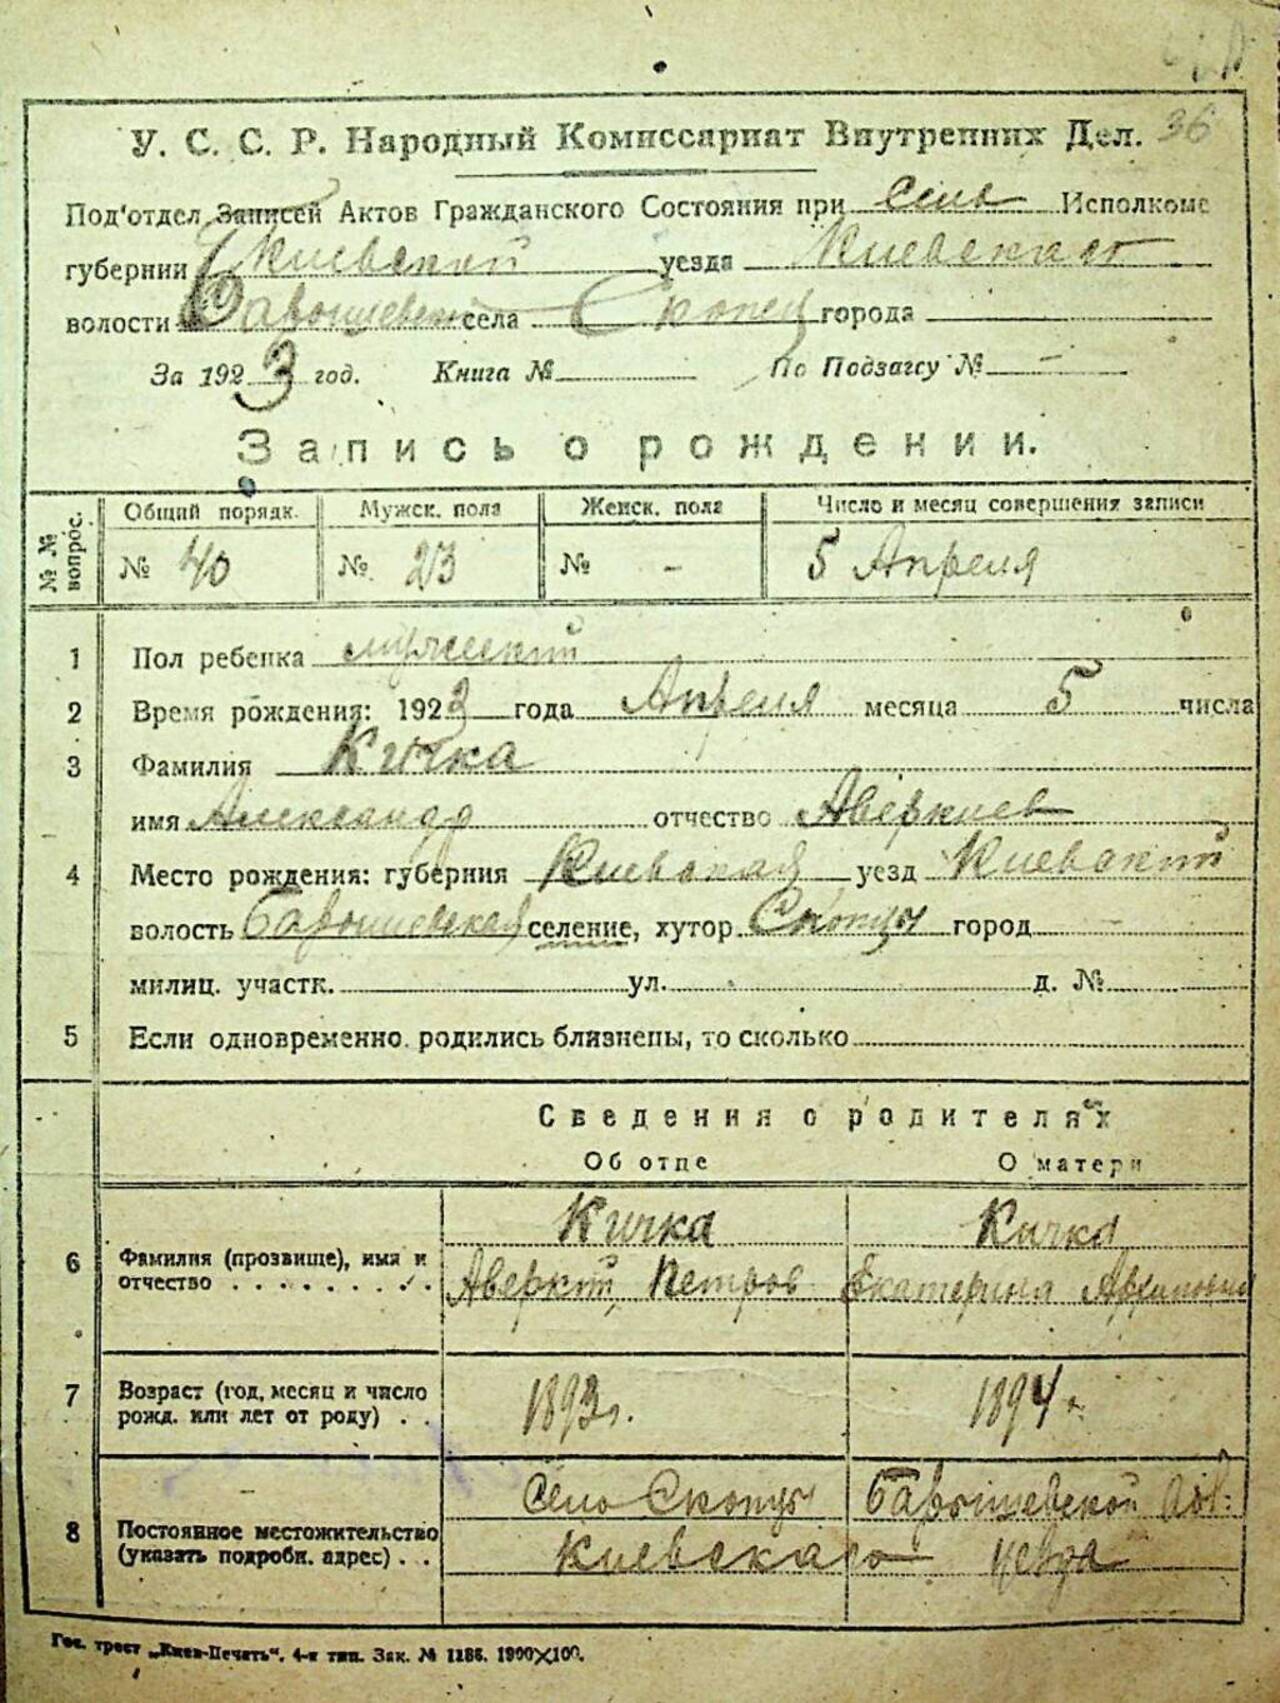 36
У. С. С. Р. Народный Комиссариат Внутренних Дел.
Под'отдел Записей Актов Гражданского Состояния при Сель Исполкоме
губернии Киевской уезда Киевскаго
волости села города
За 1923 год. Книга № По Подзагсу № -
Запись о рождении.
№ № вопрос. Общий порядк. Мужск. пола Женск. пола Число и месяц совершения записи
№ 40 № 23 № - 5 Апреля
1 Пол ребенка мужеский
2 Время рождения: 1923 года Апреля месяца 5 числа
3 Фамилия Кичка
имя Александр отчество Аверкиев
4 Место рождения: губерния Киевская уезд Киевский
волость Барышевская селение, хутор Скопцы город
милиц. участк. ул. д. №
5 Если одновременно родились близнецы, то сколько
Сведения о родителях
Об отце О матери
6 Фамилия (прозвище), имя и отчество . . . . . . . . Кичка Кичка
Аверкий Петров Екатерина
7 Возраст (год, месяц и число рожд. или лет от роду) . . 1893г. 1894г.
8 Постоянное местожительство (указать подробн. адрес) . . Село Скопцы Барышевской вол.
Киевскаго уезда
Гос. трест „Киев-Печать“. 4-я тип. Зак. № 1186. 1900×100.